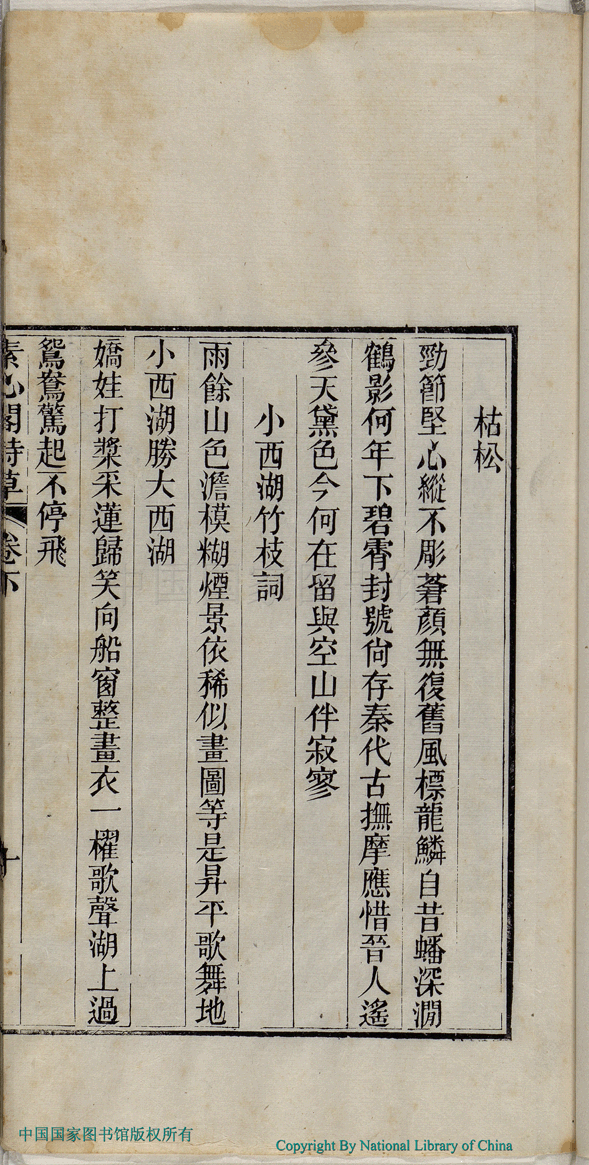 枯松
勁節堅心縱不彫蒼顏無復舊風標龍鱗自昔蟠深澗
鶴影何年下碧霄封號尙存秦代古撫摩應惜晉人遙
參天黛色今何在留與空山伴寂寥
小西湖竹枝詞
雨餘山色澹模糊煙景依稀似畫圖等是昇平歌舞地
小西湖勝大西湖
嬌娃打槳采蓮歸笑向船窗整畫衣一櫂歌聲湖上過
鴛鴦驚起不停飛
素心閣詩草 卷下 十
中国国家图书馆版权所有
Copyright By National Library of China